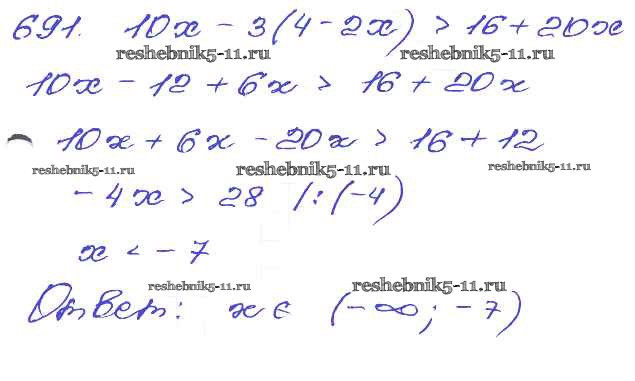 691. 10x - 3(4 - 2x) > 16 + 20x
reshebnik5-11.ru reshebnik5-11.ru
10x - 12 + 6x > 16 + 20x
10x + 6x - 20x > 16 + 12
reshebnik5-11.ru reshebnik5-11.ru reshebnik5-11.ru
- 4x > 28 /:(-4)
x < - 7
reshebnik5-11.ru reshebnik5-11.ru
Ответ: x ∈ (-∞; -7)